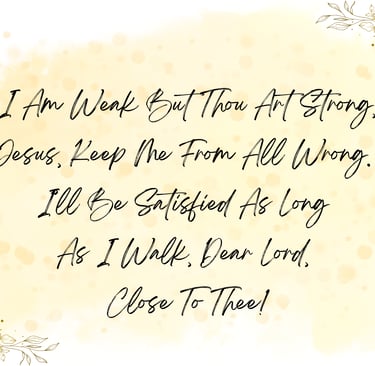 I Am Weak But Thou Art Strong,
Jesus, Keep Me From All Wrong.
I'll Be Satisfied As Long
As I Walk, Dear Lord,
Close To Thee!